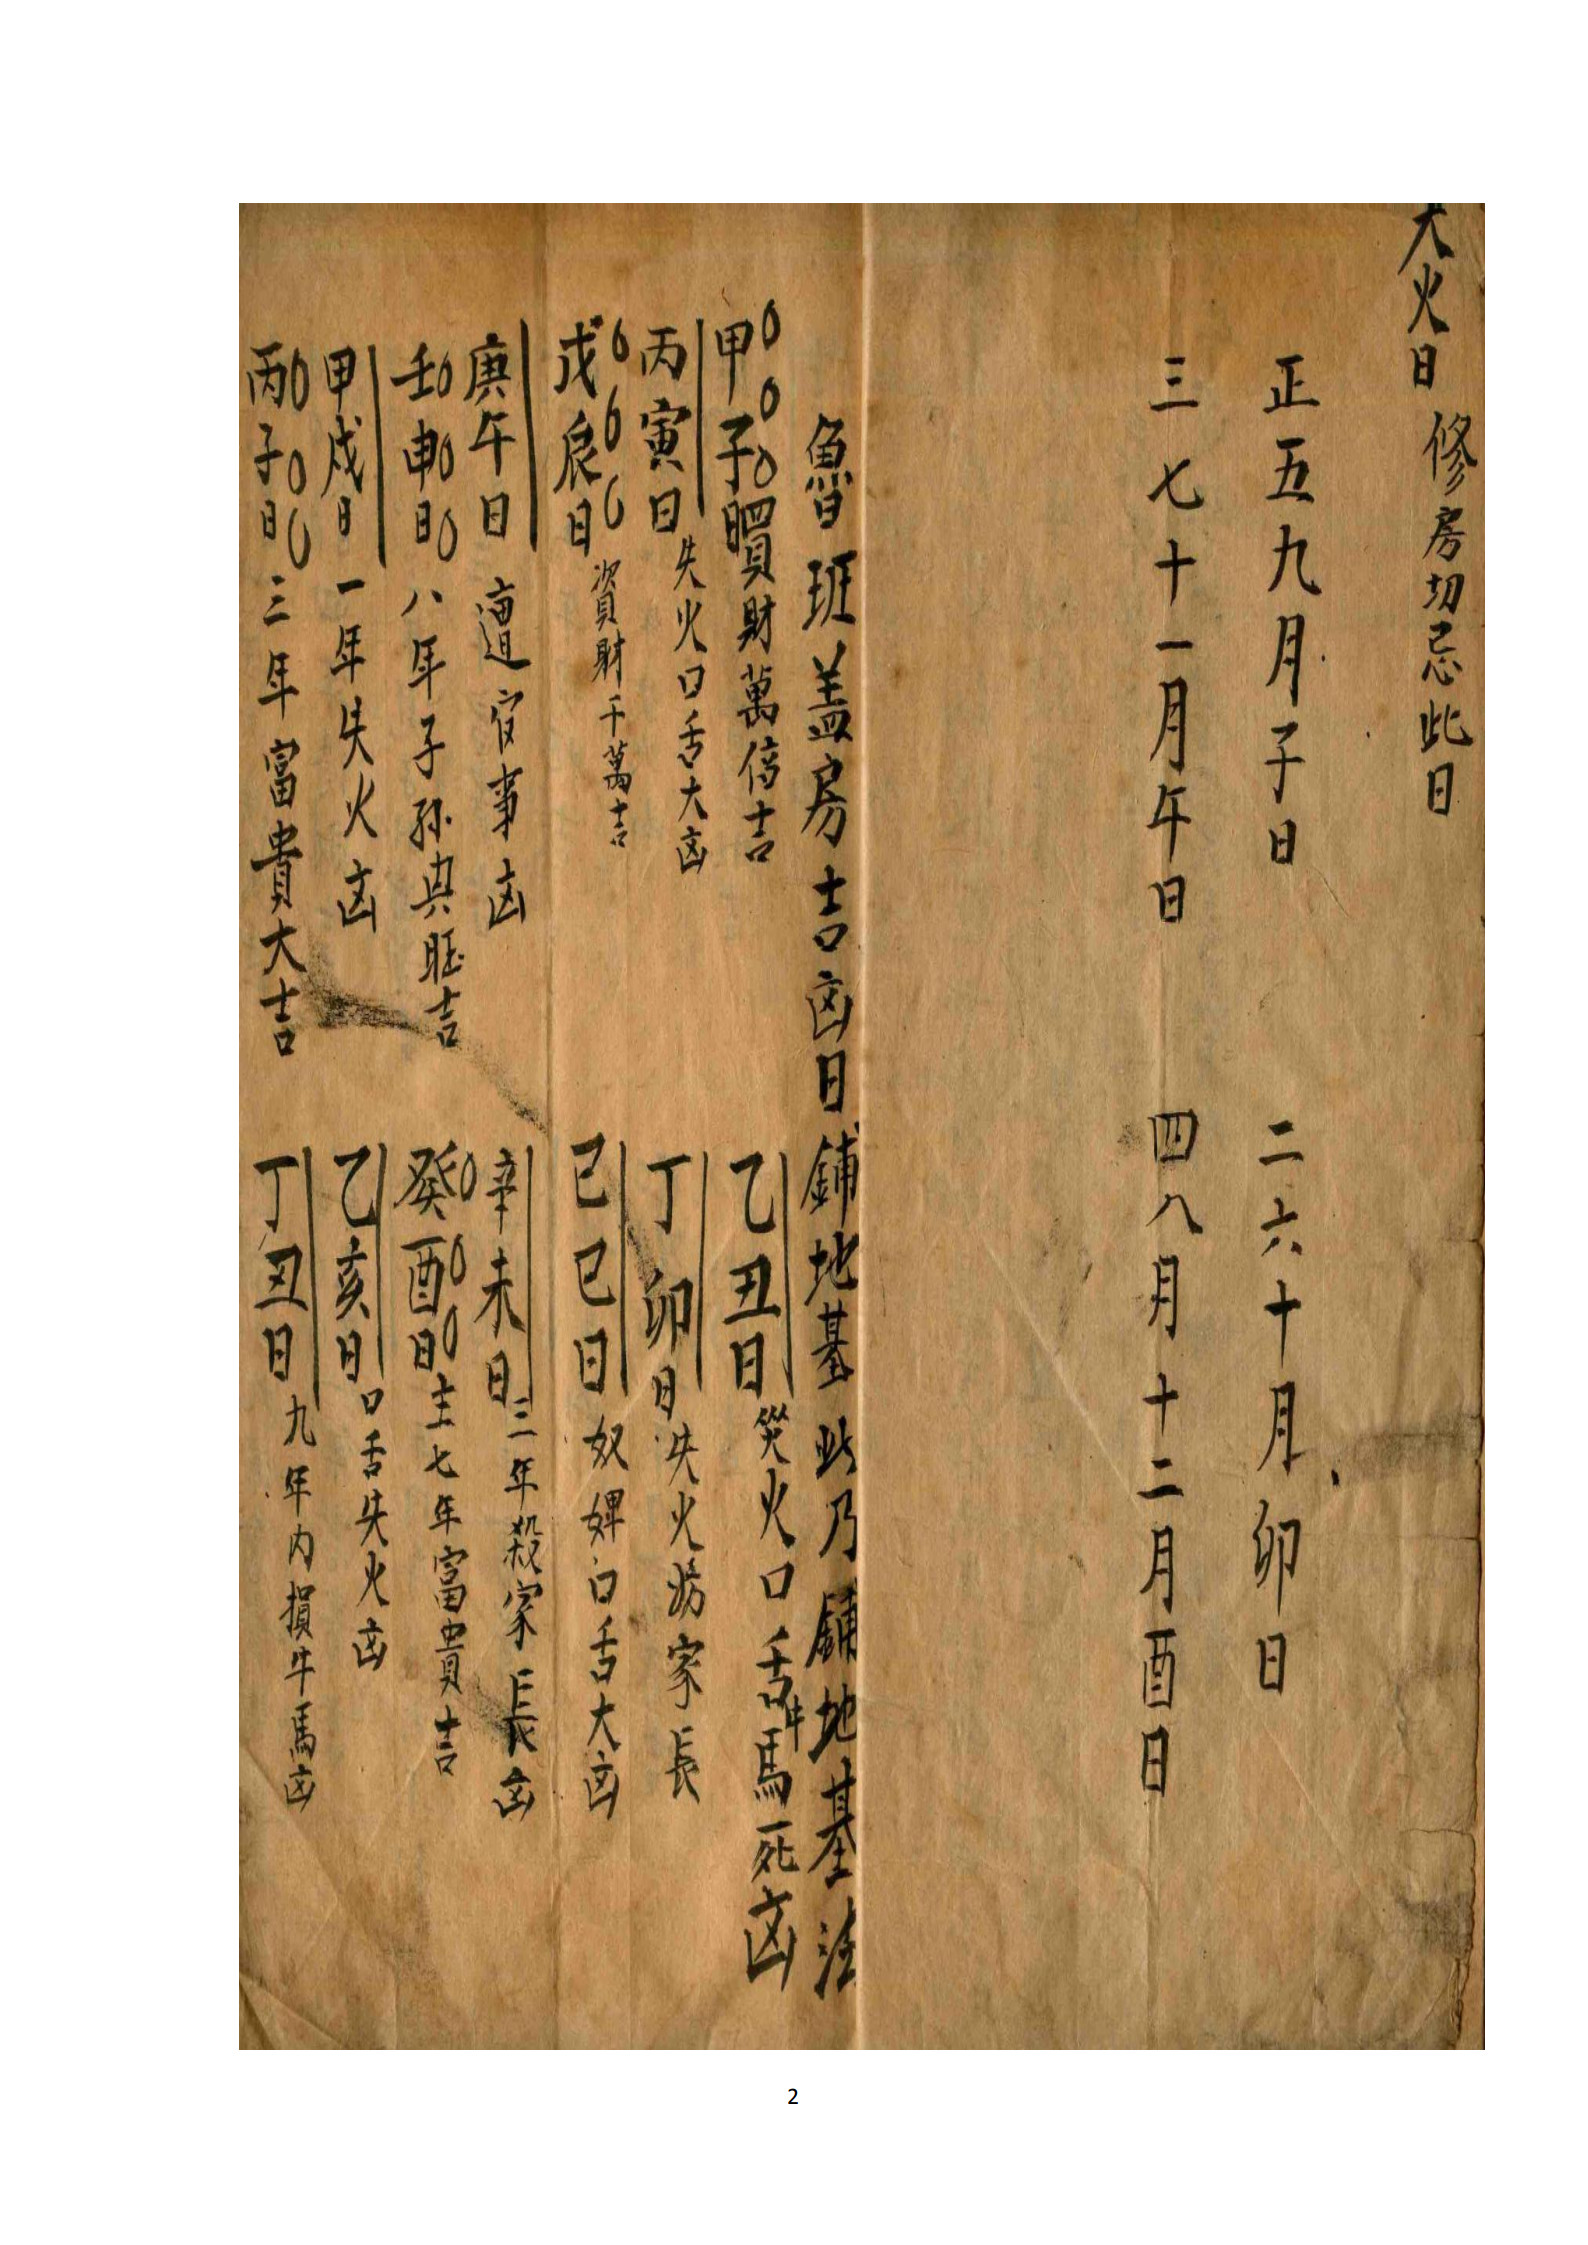 大火日 修房切忌此日
正五九月子日 二六十月卯日
三七十一月午日 四八月十二月酉日
魯班盖房吉凶日鋪地基此乃鋪地基法
甲子日 買財萬倍吉
乙丑日 災火口舌牛馬死凶
丙寅日 失火口舌大凶
丁卯日 失火傷家長
戊辰日 資財千萬吉
己巳日 奴婢口舌大凶
庚午日 遭官事凶
辛未日 三年殺家長凶
壬申日 八年子孫興旺吉
癸酉日 主七年富貴吉
甲戌日 一年失火凶
乙亥日 口舌失火凶
丙子日 三年富貴大吉
丁丑日 九年内損牛馬凶
2